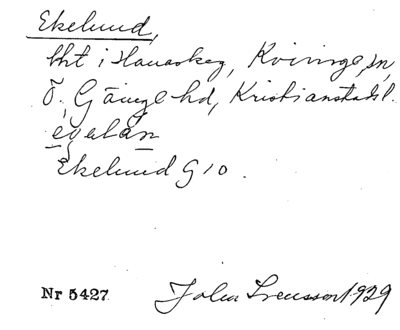 Ekelund,
tht i Hanaskog, Kvinge sn,
Ö. Göinge hd, Kristianstads l.
egalän
Ekelund G 10.
Nr 5427 John Svensson 1929